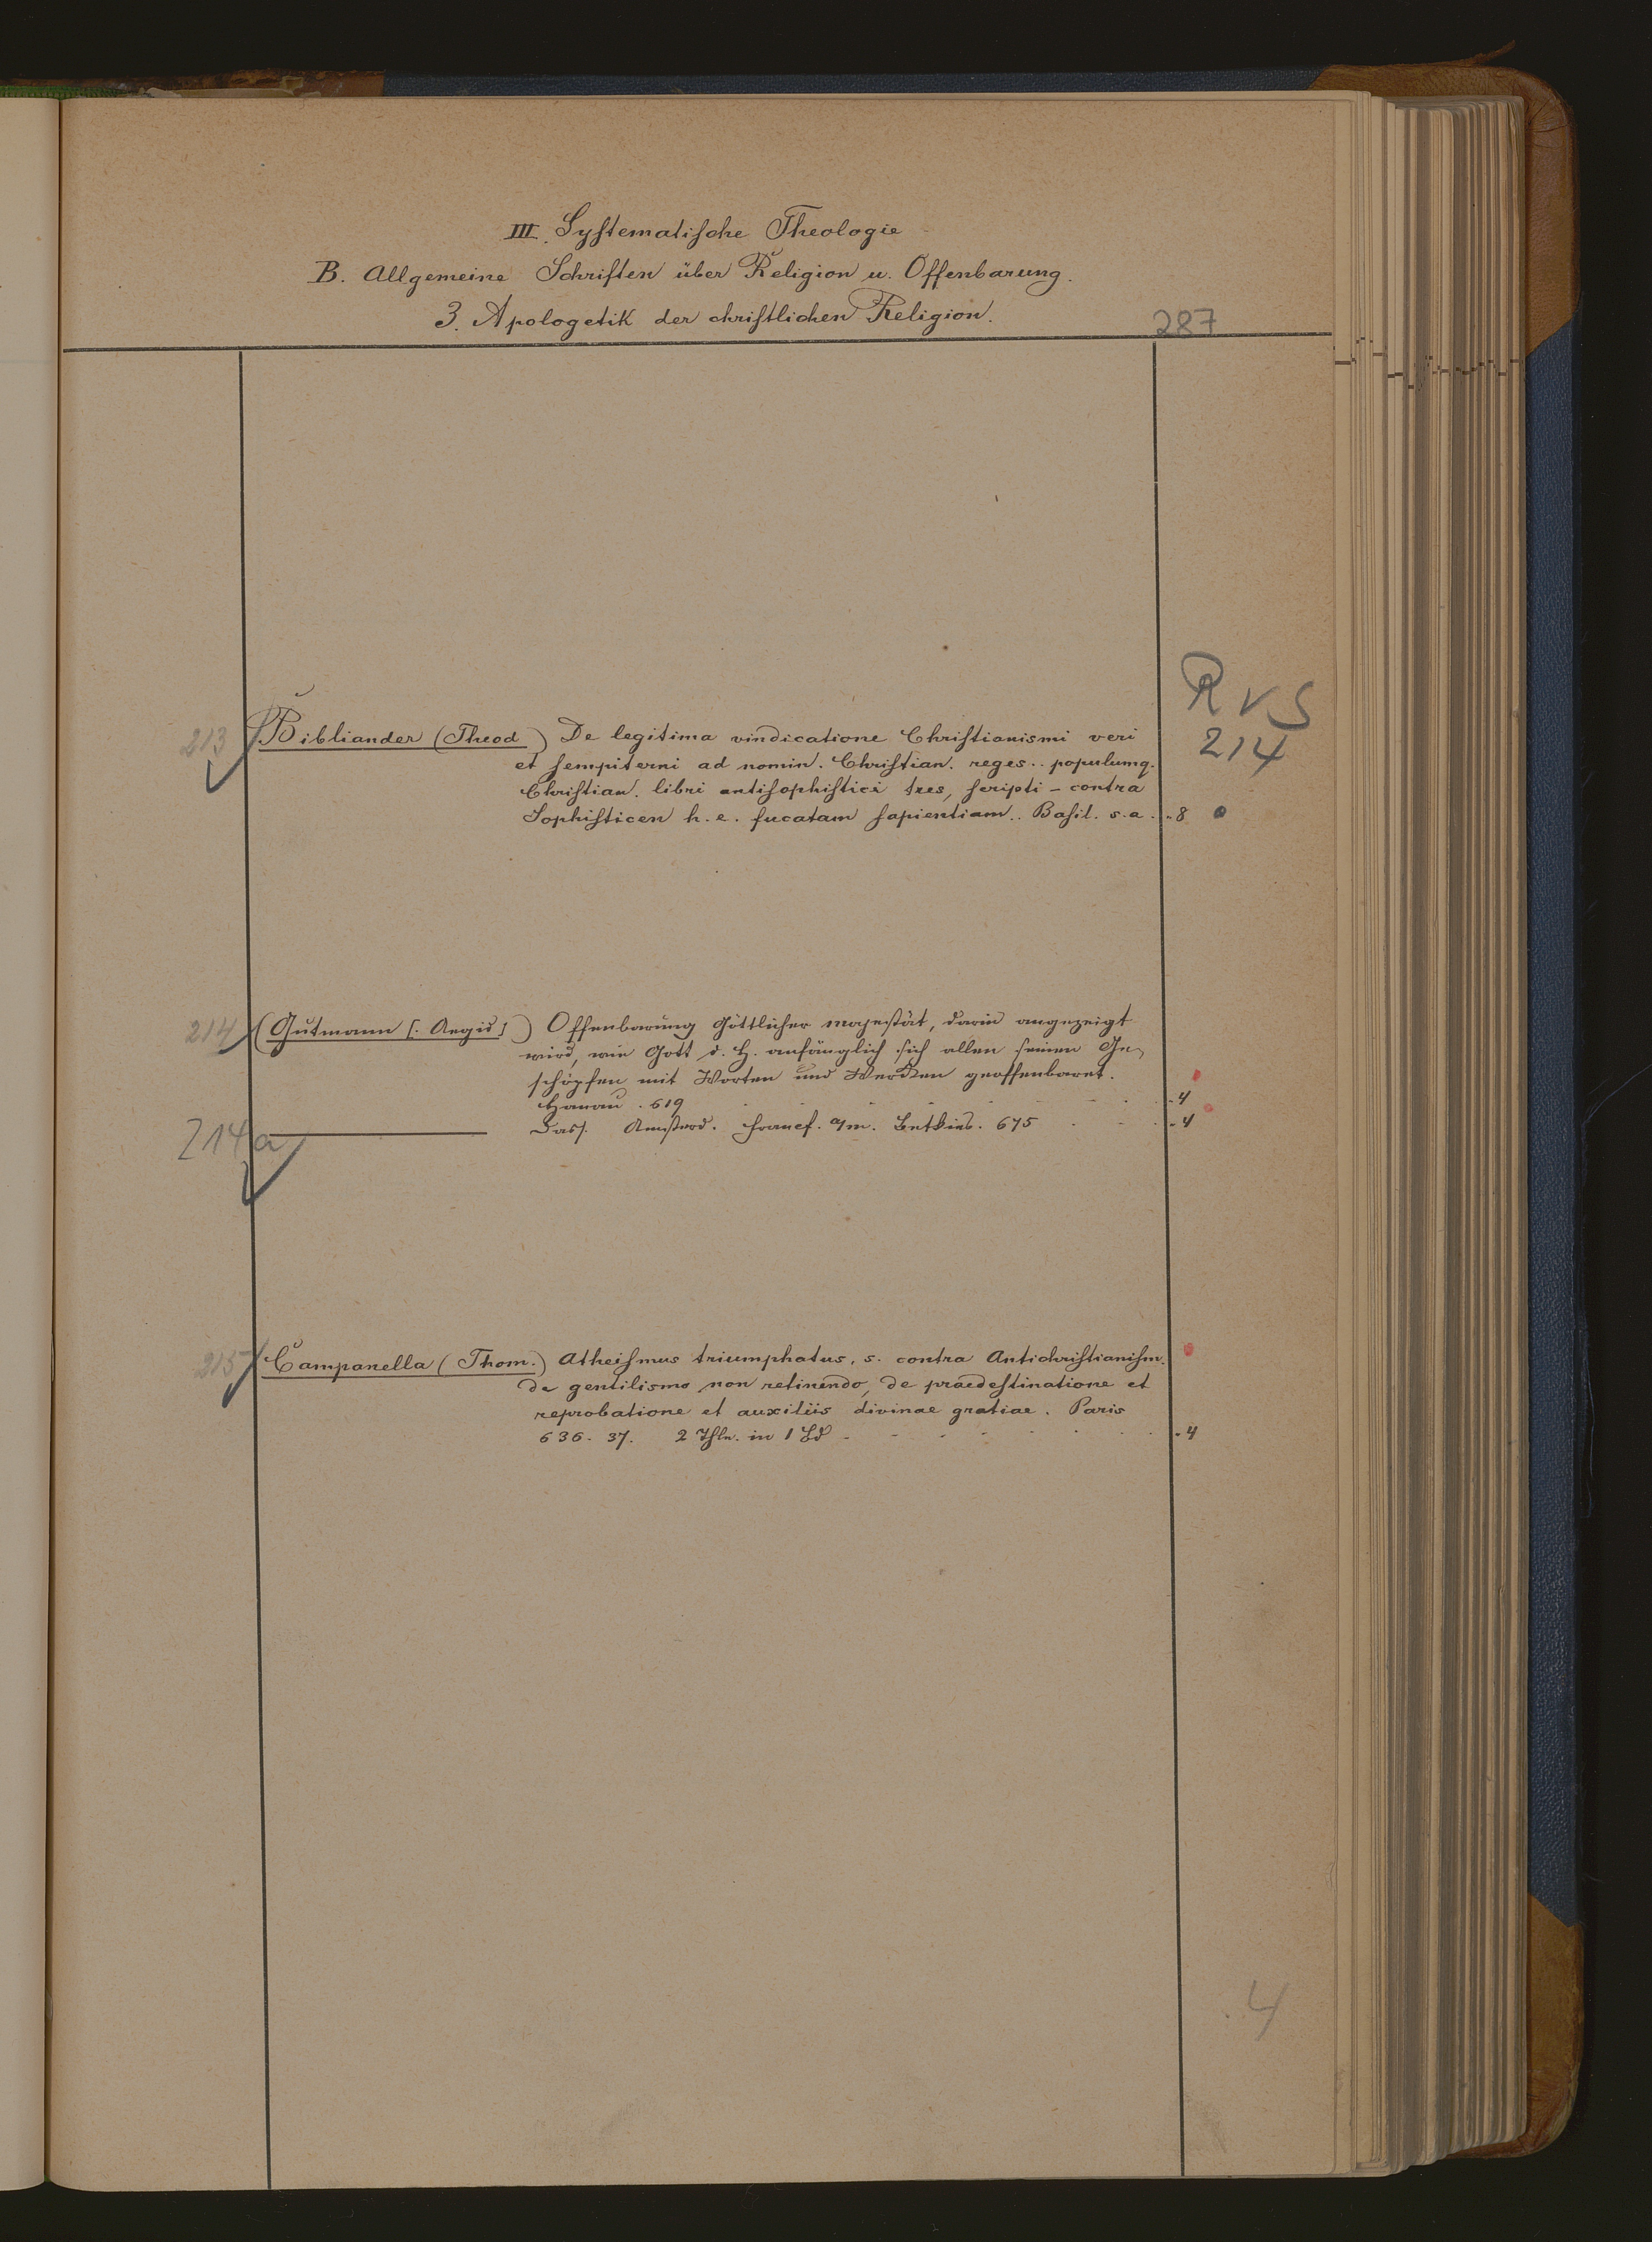 III. Systematische Theologie
B. Allgemeine Schriften über Religion u. Offenbarung.
3. Apologetik der christlichen Religion.
287
R v S
214
213 Bibliander (Theod) De legitima vindicatione Christianismi veri
et sempiterni ad nomin. Christian. reges .. populumq.
Christian. libri antisophistici tres, scripti - contra
Sophisticen h. e. fucatam sapientiam .. Basil. s. a. . 8
214 (Gutmann [: Aegid]) Offenbarung Göttlicher Majestät, darin angezeigt
wird, wie Gott d. H. anfänglich sich allen seinen Ge-
schöpfen mit Worten und Werken geoffenbaret.
Hanau . 619 - 4
214a Dass. Amsterd. Francf. a/m. 675 - 4
215 Campanella (Thom.) Atheismus triumphatus, s. contra Antichristianism.
de gentilismo non retinendo, de praedestinatione et
reprobatione et auxiliis divinae gratiae. Paris
636. 37. 2 Thle. in 1 Bd - 4
4